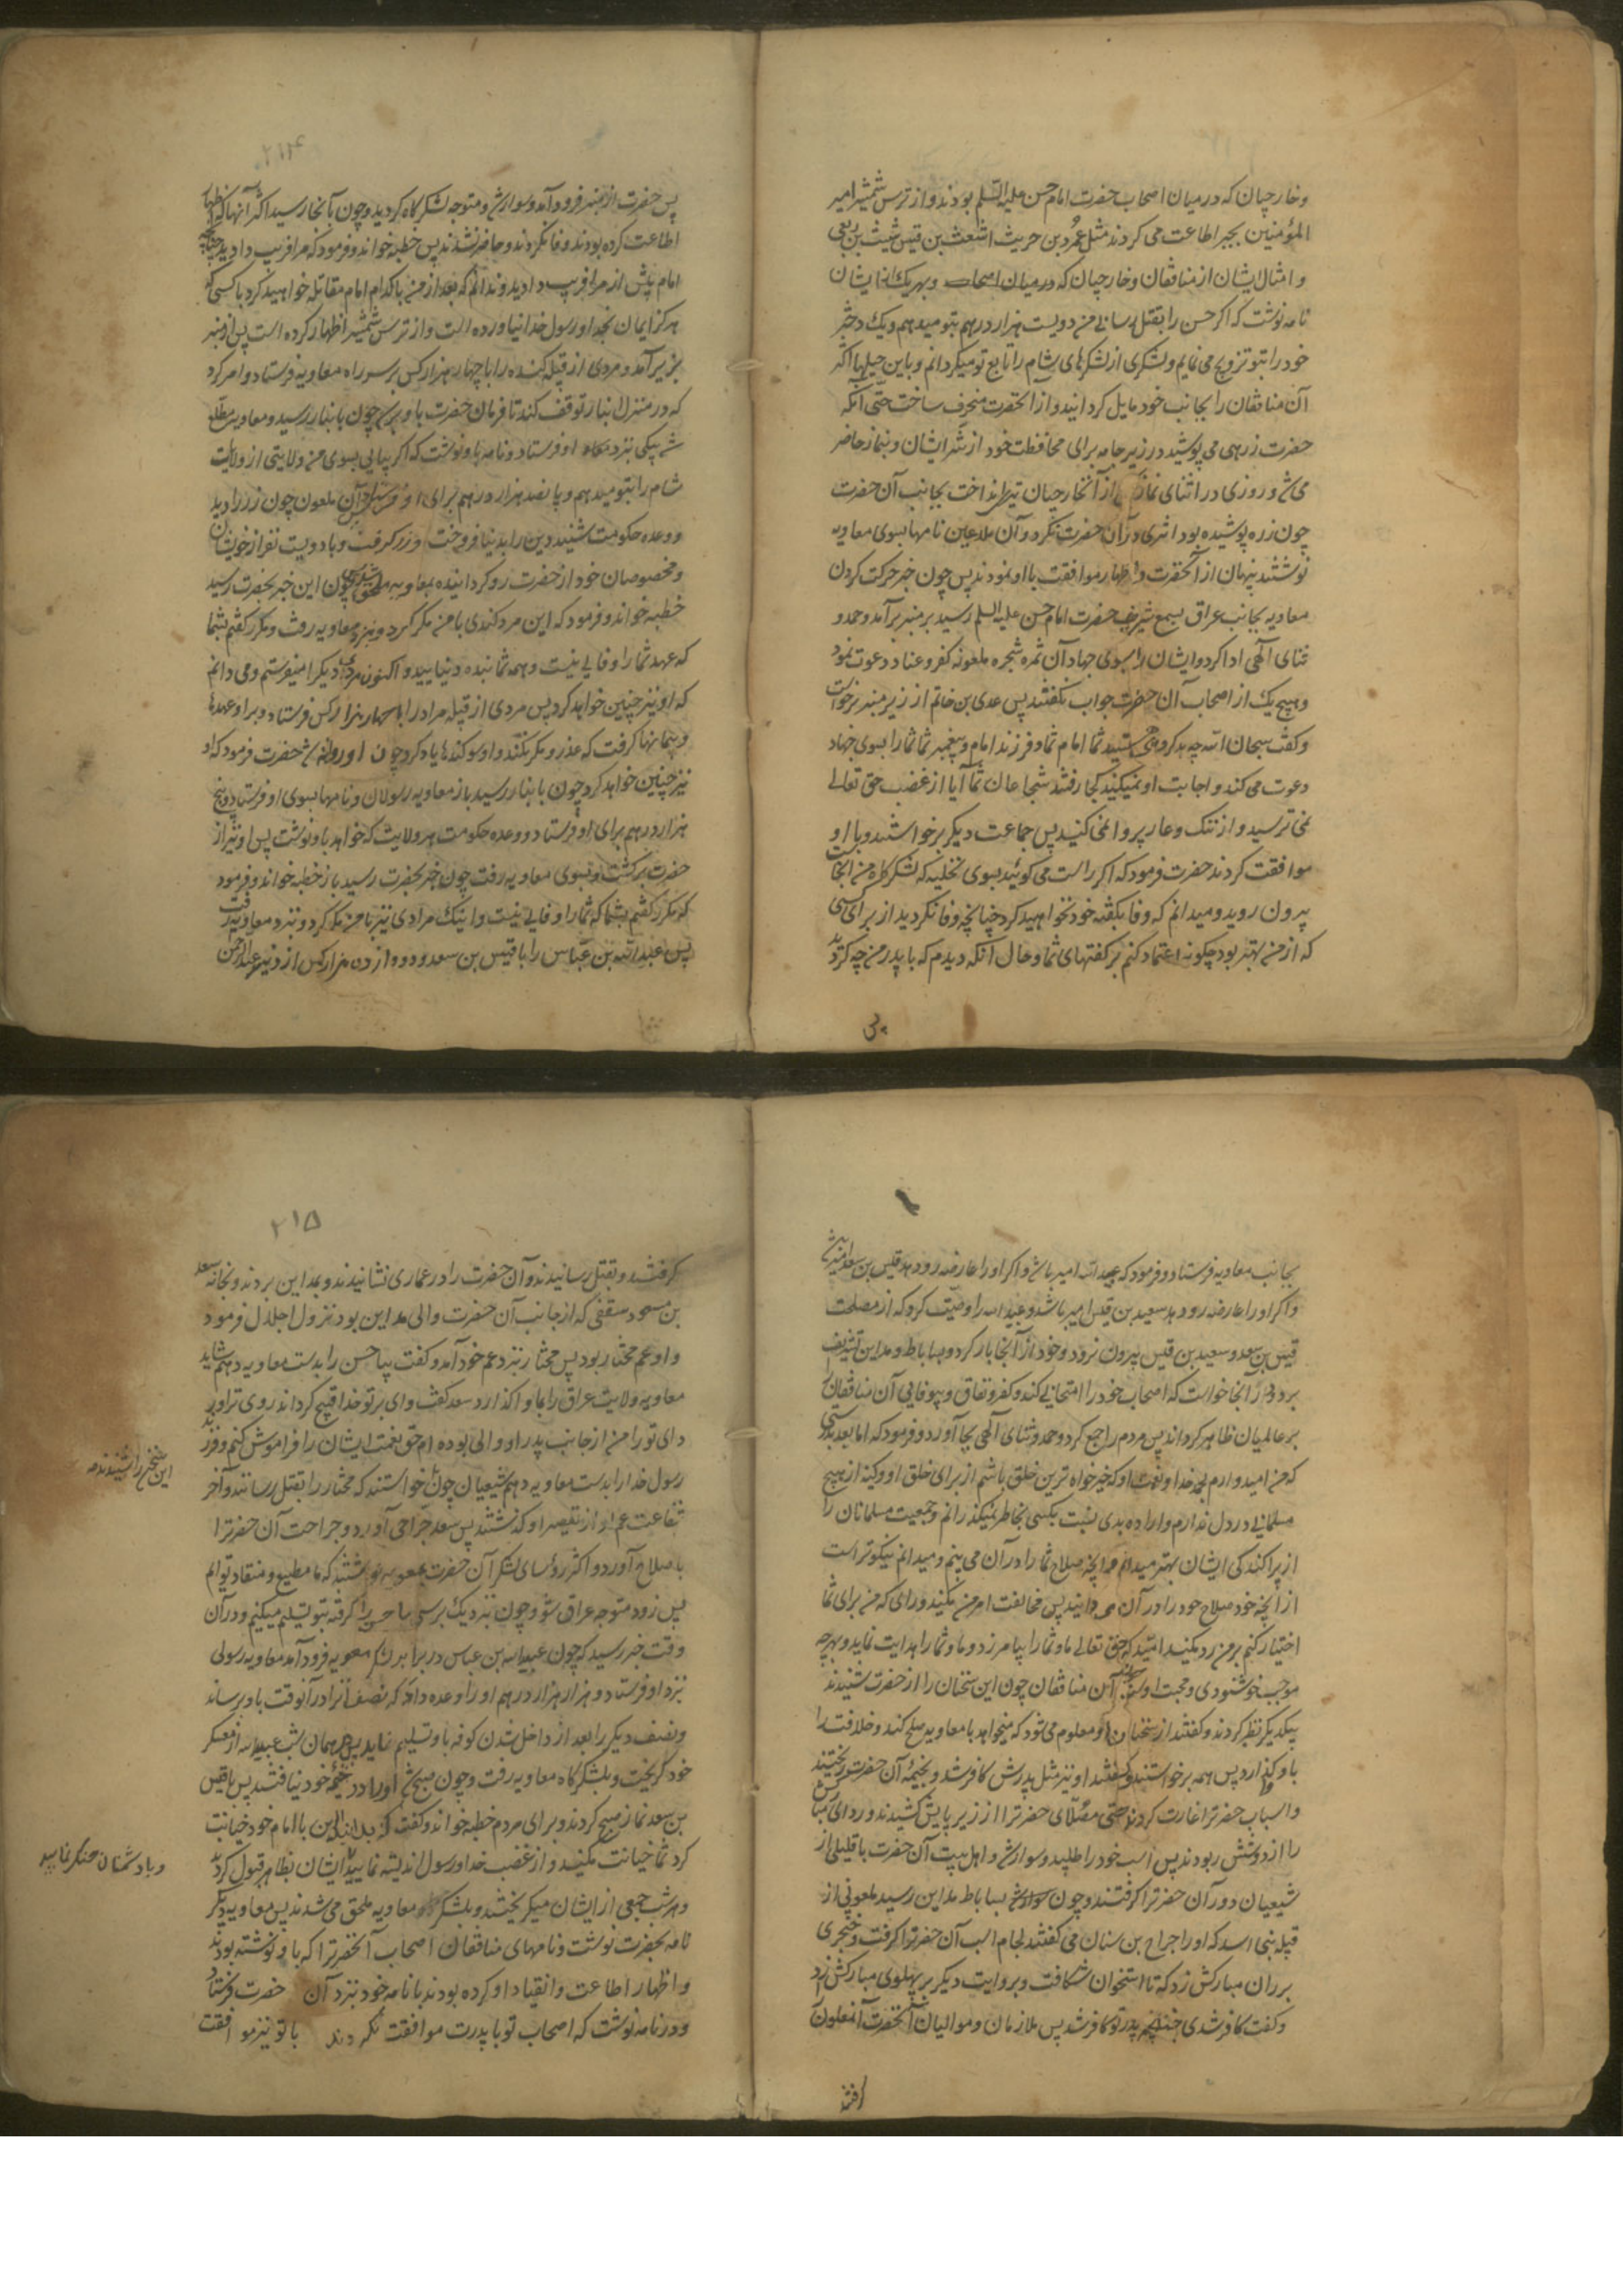 وخارجیان که در میان اصحاب حضرت امام حسن علیه السلام بودند و از ترس شمشیر امیر
المؤمنین بجبر اطاعت می کردند مثل عمرو بن حریث اشعث بن قیس شیث بن ربعی
و امثال ایشان از منافقان و خارجیان که در میان اصحاب و بهریك از ایشان
نامه نوشت که اکر حسن را بقتل رسانی من دویست هزار درهم بتو میدهم ویك دختر
خود را بتو تزویج می نمایم و لشکری از لشکرهای شام را تابع تو میکردانم و باین حیلها اکثر
آن منافقان را بجانب خود مایل کردانید و از آنحضرت منحرف ساخت حتی آنکه
حضرت زرهی می پوشید در زیر جامه برای محافظت خود از شر ایشان و بنماز حاضر
می شد و روزی در اثنای نماز از آنخارجیان تیر انداخت بجانب آن حضرت
چون زره پوشیده بود اثری در آن حضرت نکرد و آن ملاعین نامها بسوی معاویه
نوشتند پنهان از آنحضرت و اظهار موافقت با او نمودند پس چون خبر حرکت کردن
معاویه بجانب عراق بسمع شریف حضرت امام حسن علیه السلام رسید بر منبر برآمد و حمد و
ثنای الهی ادا کرد و ایشان را بسوی جهاد آن ثمره شجره ملعونه کفر و عناد دعوت نمود
و هیچ یك از اصحاب آن حضرت جواب نکفتند پس عدی بن خاتم از زیر منبر برخواست
و کفت سبحان الله چه بد کروهی هستید شما امام شما و فرزند پیغمبر شما شما را بسوی جهاد
دعوت می کند و اجابت او نمیکنید کجا رفتند شجاعان شما آیا از غضب حق تعالی
نمی ترسید و از ننك و عار پروا نمی کنید پس جماعت دیکر برخواستند و با او
موافقت کردند حضرت فرمود که اکر راست می کوئید بسوی نخلیه که لشکرکاه من آنجاست
بیرون روید و میدانم که وفا بکفته خود نخواهید کرد چنانچه وفا نکردید از برای کسی
که از من بهتر بود چکونه اعتماد کنم بر کفتهای شما و حال آنکه دیدم که با پدر من چه کردید
۲۱۴
پس حضرت از منبر فرود آمد و سوار شد و متوجه لشکرکاه کردید و چون بآنجا رسید اکثر آنها که اظهار
اطاعت کرده بودند وفا نکردند و حاضر نشدند پس خطبه خواند و فرمود که مرا فریب دادید چنانچه
امام پیش از مرا فریب دادید و ندانم که بعد از من با کدام امام مقاتله خواهید کرد با کسی که
هرکز ایمان بخدا و رسول خدا نیاورده است و از ترس شمشیر اظهار کرده است پس از منبر
بزیر آمد و مردی از قبیله کنده را با چهار هزار کس بر سر راه معاویه فرستاد و امر کرد
که در منزل انبار توقف کند تا فرمان حضرت باو برسد چون بانبار رسید و معاویه مطلع
شد پیکی بنزد او فرستاد و نامه باو نوشت که اکر بیایی بسوی من ولایتی از ولایت
شام را بتو میدهم و پانصد هزار درهم برای او فرستاد پس آن ملعون چون زر را دید
و وعده حکومت شنید دین را بدنیا فروخت و زر کرفت و با دویست نفر از خویشان
و مخصوصان خود از حضرت رو کردانیده بمعاویه ملحق شد پس چون این خبر بحضرت رسید
خطبه خواند و فرمود که این مرد کندی با من مکر کرد و بنزد معاویه رفت و مکرر کفتم بشما
که عهد شما را وفایی نیست و همه شما بنده دنیایید و اکنون مردی دیکر را میفرستم و می دانم
که او نیز چنین خواهد کرد پس مردی از قبیله مراد را با چهار هزار کس فرستاد و بر او عهدها
و پیمانها کرفت که عذر و مکر نکند و او سوکندها یاد کرد چون او روانه شد حضرت فرمود که او
نیز چنین خواهد کرد چون بانبار رسید باز معاویه رسولان و نامها بسوی او فرستاد و پنج
هزار درهم برای او فرستاد و وعده حکومت هر ولایت که خواهد باو نوشت پس او نیز از
حضرت برکشت و بسوی معاویه رفت چون خبر بحضرت رسید باز خطبه خواند و فرمود
که مکرر کفتم بشما که شما را وفایی نیست و اینك مرادی نیز با من مکر کرد و بنزد معاویه رفت
پس عبدالله بن عباس را با قیس بن سعد و دوازده هزار کس از دیر عبدالرحمن
بجانب معاویه فرستاد و فرمود که عبیدالله امیر باشد و اکر او را عارضه رو دهد قیس بن سعد امیر باشد
و اکر او را عارضه رو دهد سعید بن قیس امیر باشد و عبیدالله را وصیت کرد که از مصلحت
قیس بن سعد و سعید بن قیس بیرون نرود و خود از آنجا بار کرد و بساباط و مداین تشریف
برد و در آنجا خواست که اصحاب خود را امتحانی کند و کفر و نفاق و بیوفایی آن منافقان را
بر عالمیان ظاهر کرداند پس مردم را جمع کرد و حمد و ثنای الهی بجا آورد و فرمود که اما بعد بدرستی
که من امیدوارم بحمد خدا و نعمت او که خیرخواه ترین خلق باشم از برای خلق او و کینه از هیچ
مسلمانی در دل ندارم و اراده بدی نسبت بکسی بخاطر نمیکذرانم و جمعیت مسلمانان را
از پراکندکی ایشان بهتر میدانم و آنچه صلاح شما را در آن می بینم و میدانم نیکوتر است
از آنچه خود صلاح خود را در آن می دانید پس مخالفت امر من مکنید و رائی که من برای شما
اختیار کنم بر من رد مکنید امید که حق تعالی ما و شما را بیامرزد و ما و شما را هدایت نماید و بهرچه
موجب خوشنودی و محبت اوست آن منافقان چون این سخنان را از حضرت شنیدند
بیکدیکر نظر کردند و کفتند از سخنان او معلوم می شود که میخواهد با معاویه صلح کند و خلافت را
باو کذارد پس همه برخواستند و کفتند او نیز مثل پدرش کافر شد و بخیمه آن حضرت ریختند
و اسباب حضرترا غارت کردند حتی مصلای حضرترا از زیر پایش کشیدند و ردای مبارکش
را از دوشش ربودند پس اسب خود را طلبید و سوار شد و اهل بیت آن حضرت با قلیلی از
شیعیان دور آن حضرترا کرفتند و چون بساباط مداین رسید ملعونی از
قبیله بنی اسد که او را جراح بن سنان می کفتند لجام اسب آن حضرترا کرفت و خنجری
بر ران مبارکش زد که تا استخوان شکافت و بروایت دیکر بر پهلوی مبارکش زد
و کفت کافر شدی چنانچه پدر تو کافر شد پس ملازمان و موالیان آنحضرت آنملعون
۲۱۵
کرفتند و بقتل رسانیدند و آن حضرت را در عماری نشانیدند و بمداین بردند و بخانه سعد
بن مسعود سقفی که از جانب آن حضرت والی مداین بود نزول اجلال فرمود
و او عم مختار بود پس مختار بنزد عم خود آمد و کفت بیا حسن را بدست معاویه دهیم شاید
معاویه ولایت عراق را بما واکذارد سعد کفت وای بر تو خدا قبیح کرداند روی ترا و
رای تو را من از جانب پدر او والی بوده ام حق نعمت ایشان را فراموش کنم و فرزند
رسول خدا را بدست معاویه دهم شیعیان چون خواستند که مختار را بقتل رسانند و آخر
شفاعت عم او از تقصیر او کذشتند پس سعد جراحی آورد و جراحت آن حضرترا
باصلاح آورد و اکثر رؤسای لشکر آن حضرت بمعویه نوشتند که ما مطیع و منقاد توایم
پس زود متوجه عراق شو و چون نزدیك برسی ما حسن را کرفته بتو تسلیم میکنیم و در آن
وقت خبر رسید که چون عبیدالله بن عباس در برابر لشکر معویه فرود آمد معاویه رسولی
نزد او فرستاد و هزار هزار درهم او را وعده داد که نصف آنرا در آنوقت باو برساند
و نصف دیکر را بعد از داخل شدن کوفه باو تسلیم نماید پس همان شب عبیدالله از معسکر
خود کریخت و بلشکرکاه معاویه رفت و چون صبح شد او را در خیمه خود نیافتند پس با قیس
بن سعد نماز صبح کردند و برای مردم خطبه خواند و کفت که این با امام خود خیانت
کرد شما خیانت مکنید و از غضب خدا و رسول اندیشه نمایید ایشان بظاهر قبول کردند
و هر شب جمعی از ایشان میکریختند و بلشکر معاویه ملحق می شدند پس معاویه دیکر
نامه بحضرت نوشت و نامهای منافقان اصحاب آنحضرترا که باو نوشته بودند
و اظهار اطاعت و انقیاد او کرده بودند با نامه خود نزد آن حضرت فرستاد
و در نامه نوشت که اصحاب تو با پدرت موافقت نکردند با تو نیز موافقت
این سخن را شنیدند
و با دشمنان جنك نمایید